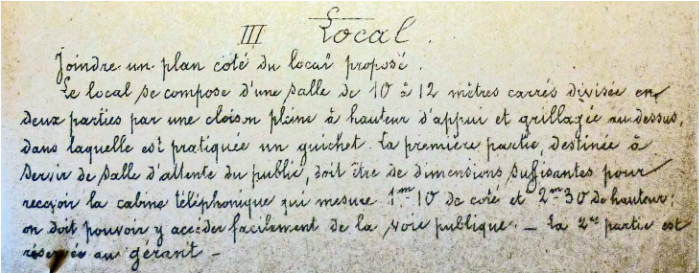 III Local.
Joindre un plan coté du local proposé.
Le local se compose d'une salle de 10 à 12 mètres carrés divisée en
deux parties par une cloison pleine à hauteur d'appui et grillagée au dessus,
dans laquelle est pratiquée un guichet. La première partie, destinée à
servir de salle d'attente du public, doit être de dimensions suffisantes pour
recevoir la cabine téléphonique qui mesure 1m10 de coté et 2m30 de hauteur;
on doit pouvoir y accéder facilement de la voie publique. — La 2me partie est
réservée au gérant —